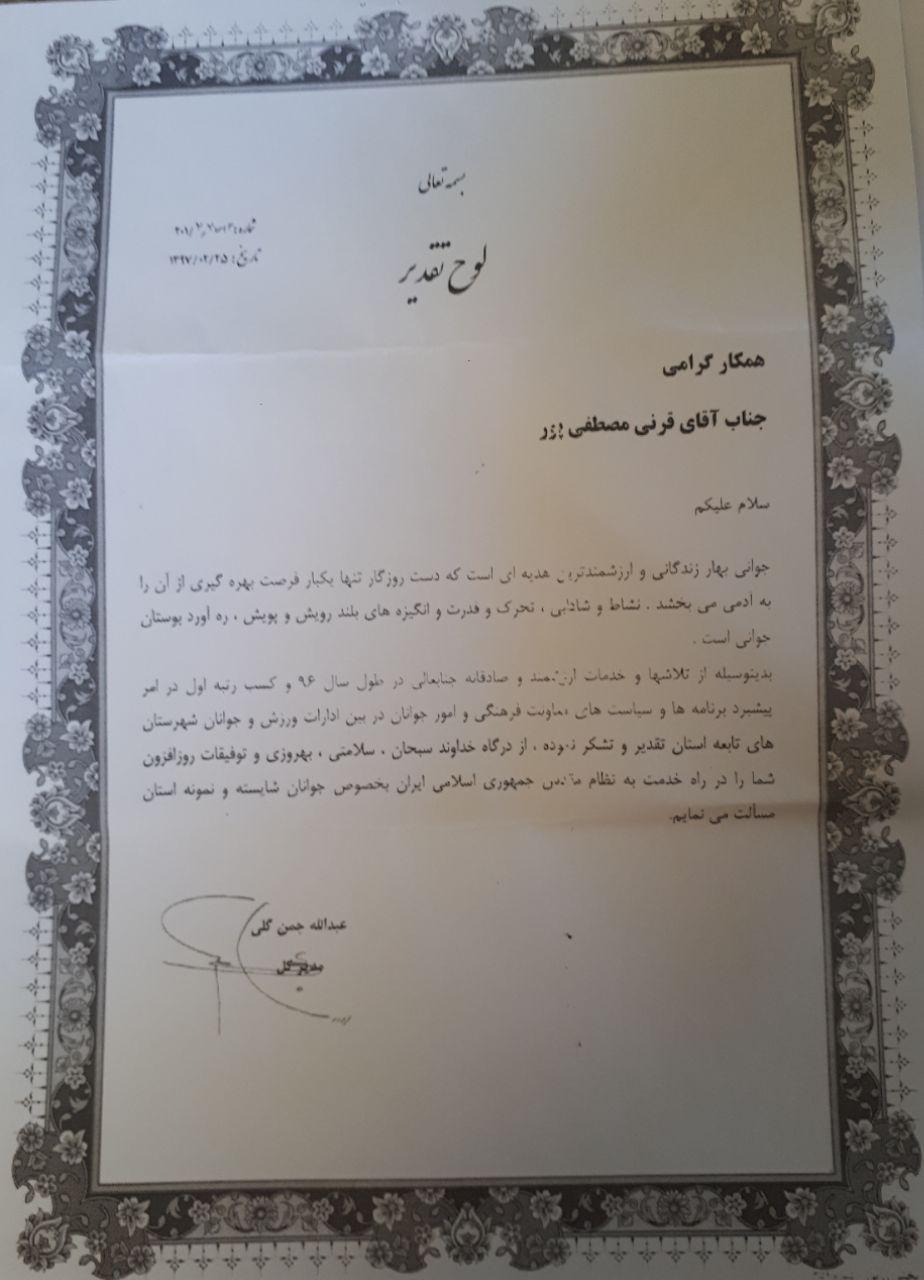 بسمه تعالی
شماره:
تاریخ: ۱۳۹۷/۰۲/۲۵
لوح تقدیر
همکار گرامی
جناب آقای قرنی مصطفی پور
سلام علیکم
جوانی بهار زندگانی و ارزشمندترین هدیه ای است که دست روزگار تنها یکبار فرصت بهره گیری از آن را
به آدمی می بخشد . نشاط و شادابی ، تحرک و قدرت و انگیزه های بلند رویش و پویش ، ره آورد بوستان
جوانی است .
بدینوسیله از تلاشها و خدمات ارزشمند و صادقانه جنابعالی در طول سال ۹۶ و کسب رتبه اول در امر
پیشبرد برنامه ها و سیاست های معاونت فرهنگی و امور جوانان در بین ادارات ورزش و جوانان شهرستان
های تابعه استان تقدیر و تشکر نموده ، از درگاه خداوند سبحان ، سلامتی ، بهروزی و توفیقات روزافزون
شما را در راه خدمت به نظام مقدس جمهوری اسلامی ایران بخصوص جوانان شایسته و نمونه استان
مسألت می نمایم.
عبدالله چمن گلی
مدیر کل